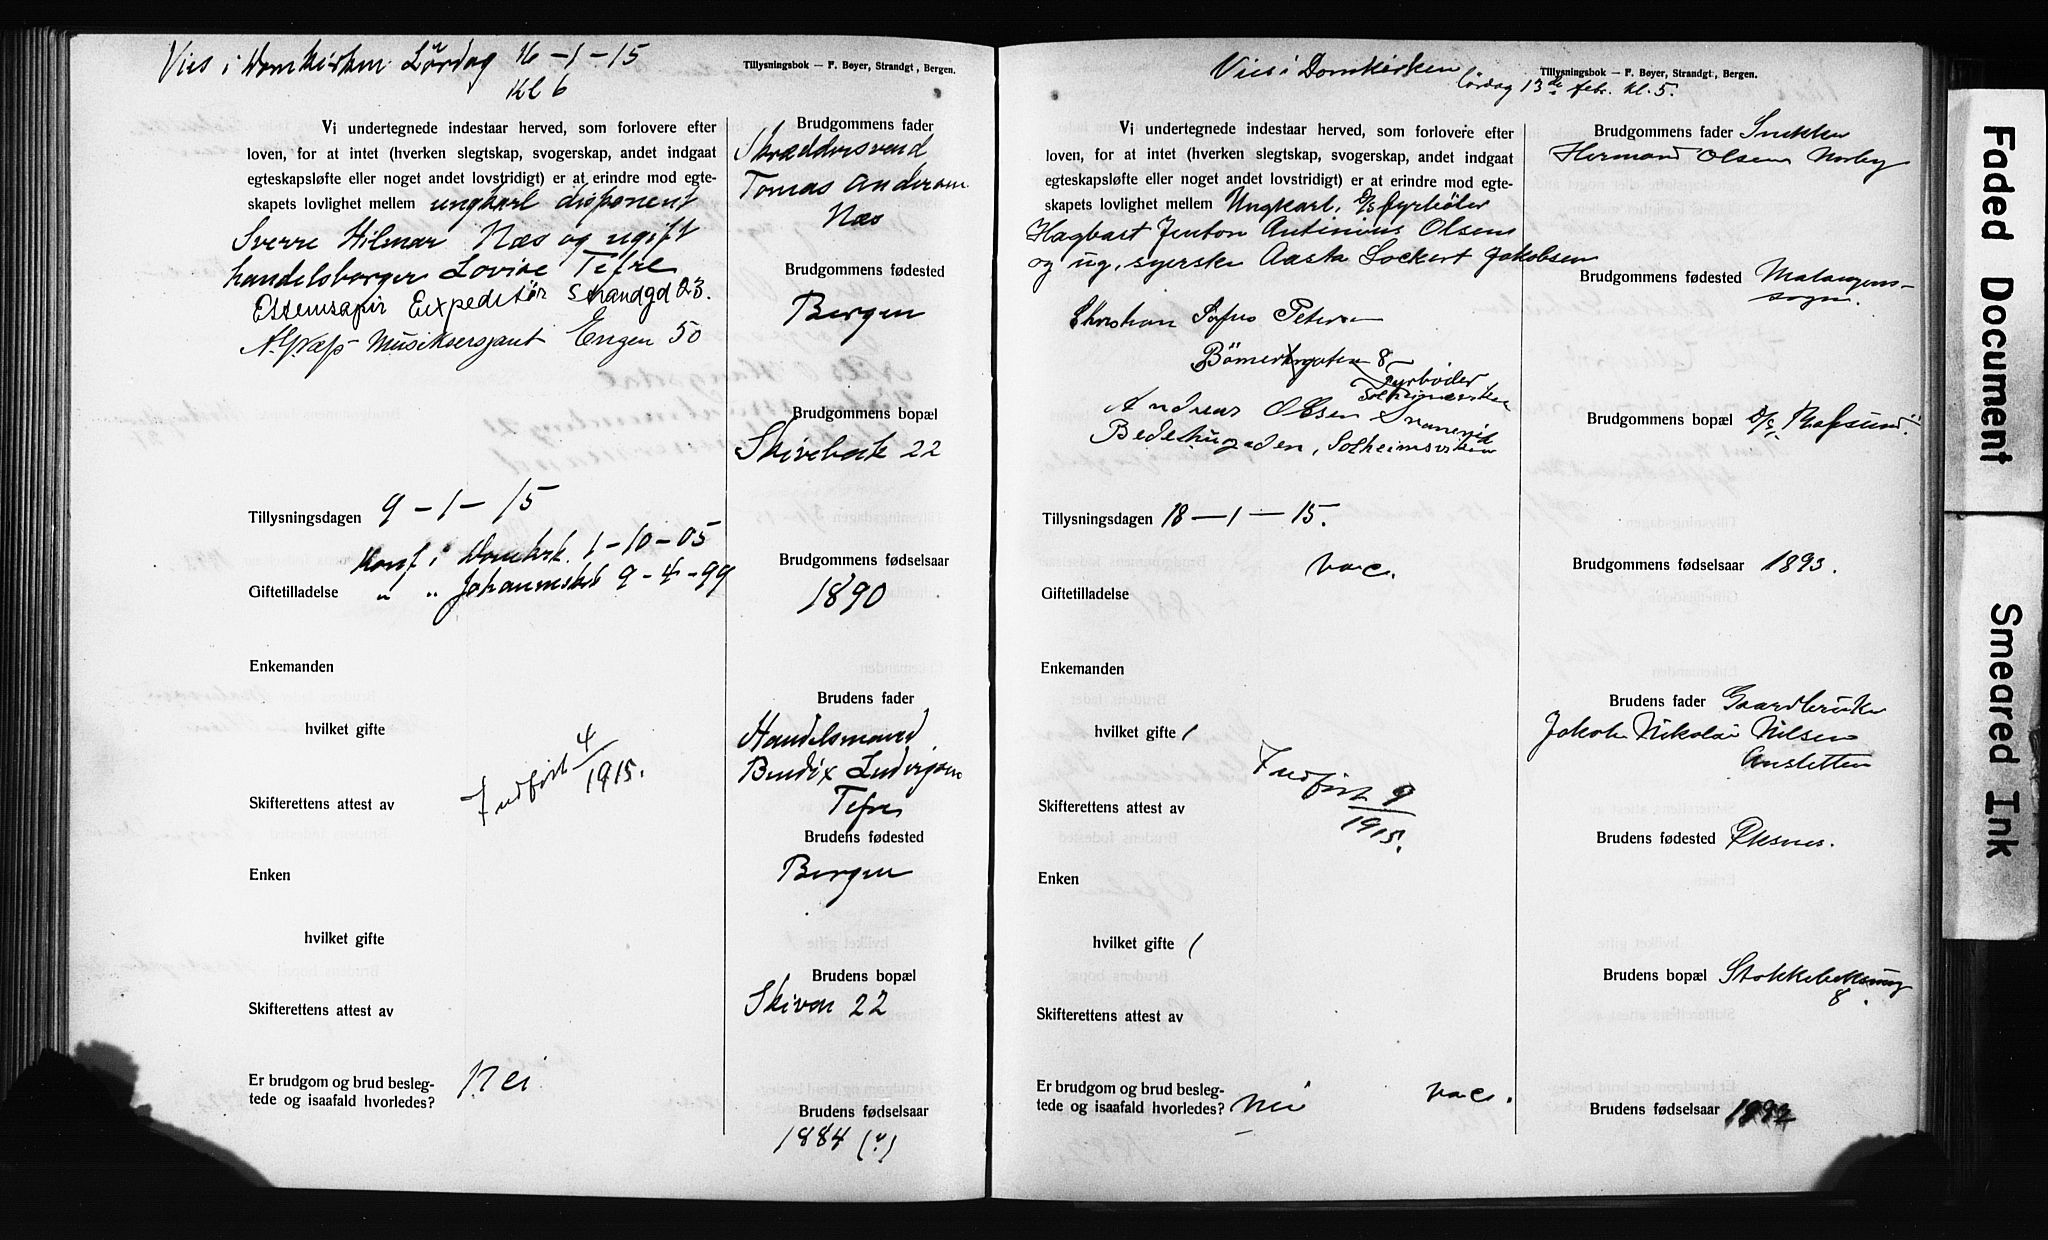 Vies i Domkirken Lördag 16-1-15
Kl 6
Tillysningsbok — F. Beyer, Strandgt, Bergen.
Vi undertegnede indestaar herved, som forlovere efter
loven, for at intet (hverken slegtskap, svogerskap, andet indgaat
egteskapsløfte eller noget andet lovstridigt) er at erindre mod egte-
skapets lovlighet mellem ungkarl disponent
Sverre Hilmar Næs og ugift
handelsborger Lovise Tefre
Expeditör Strandgd 23.
Musiksersjant Engen 50
Tillysningsdagen 9-1-15
Konf i Domkirk. 1-10-05
Giftetilladelse " " Johanneskk 9-4-99
Enkemanden
hvilket gifte
Indført 4/1915.
Skifterettens attest av
Enken
hvilket gifte
Skifterettens attest av
Er brudgom og brud besleg-
tede og isaafald hvorledes? Nei
Brudgommens fader
Skræddersvend
Tomas Andersen
Næs
Brudgommens fødested
Bergen
Brudgommens bopæl
Skivebak 22
Brudgommens fødselsaar
1890
Brudens fader
Handelsmand
Bendix Ludvigsen
Tefre
Brudens fødested
Bergen
Brudens bopæl
Skiven 22
Brudens fødselsaar
1884 (?)
Vies i Domkirken
lördag 13de febr. kl. 5.
Tillysningsbok — F. Beyer, Strandgt, Bergen.
Vi undertegnede indestaar herved, som forlovere efter
loven, for at intet (hverken slegtskap, svogerskap, andet indgaat
egteskapsløfte eller noget andet lovstridigt) er at erindre mod egte-
skapets lovlighet mellem Ungkarl, D/S fyrböter
Hagbart Jenton Antinius Olsen
og ug, syerske Aasta Lockert Jakobsen
Christian Sofus Petersen
8
Fyrböder
Solheimsviken
Andreas Olsen
Solheimsviken
Tillysningsdagen 18-1-15.
vac.
Giftetilladelse
Enkemanden
hvilket gifte 1
Indført 9/1915.
Skifterettens attest av
Enken
hvilket gifte 1
Skifterettens attest av
Er brudgom og brud besleg-
tede og isaafald hvorledes? Nei vac.
Brudgommens fader Snekker
Hermand Olsen Norby
Brudgommens fødested Malangens-
sogn.
Brudgommens bopæl D/S Raftsund
Brudgommens fødselsaar 1893.
Brudens fader Gaardbruker
Jakob Nikolai Nilsen
Brudens fødested Øksnes.
Brudens bopæl
8.
Brudens fødselsaar 1892
Faded Document
Smeared Ink